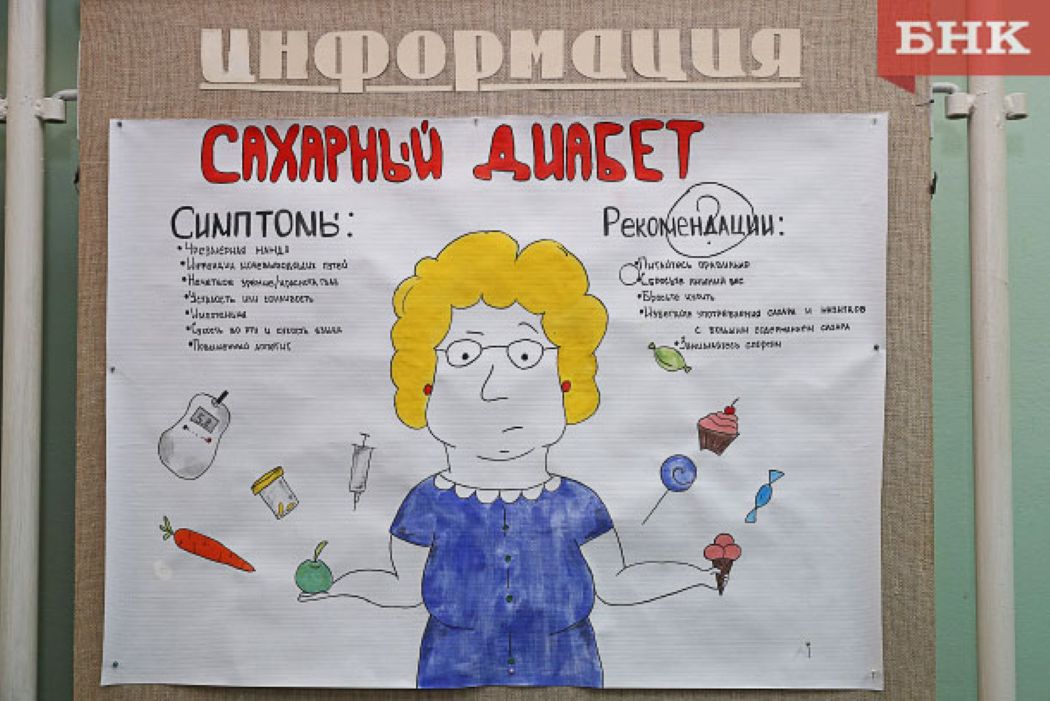 БНК
Информация
Сахарный диабет
Симптомы:
•Чрезмерная жажда
•Инфекции мочевыводящих путей
•Нечеткое зрение/
•Усталость или сонливость
•Сухость во рту и сухость языка
•Повышенный аппетит
Рекомендации:
?
•Питайтесь правильно
•Сбросьте лишний вес
•Бросьте курить
употребления сахара и напитков
с большим содержанием сахара
•Занимайтесь спортом
5.8